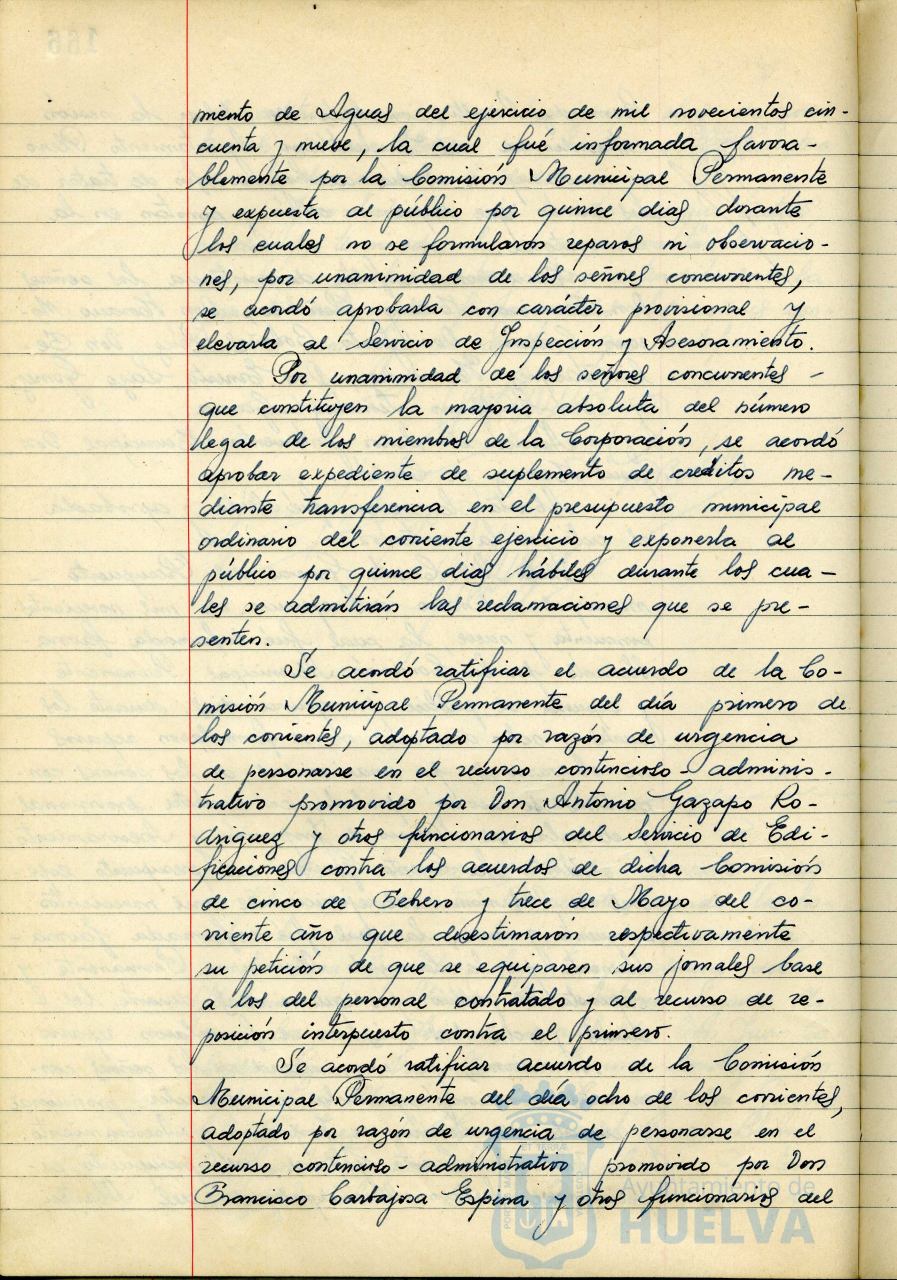 miento de Aguas del ejercicio de mil novecientos cin-
cuenta y nueve, la cual fué informada favora-
blemente por la Comisión Municipal Permanente
y expuesta al público por quince dias durante
los cuales no se formularon reparos ni observacio-
nes, por unanimidad de los señores concurrentes,
se acordó aprobarla con carácter provisional y
elevarla al Servicio de Inspección y Asesoramiento.
Por unanimidad de los señores concurrentes -
que constituyen la mayoria absoluta del número
legal de los miembros de la Corporación, se acordó
aprobar expediente de suplemento de créditos me-
diante transferencia en el presupuesto municipal
ordinario del corriente ejercicio y exponerla al
público por quince dias hábiles durante los cua-
les se admitirán las reclamaciones que se pre-
senten.
Se acordó ratificar el acuerdo de la Co-
misión Municipal Permanente del día primero de
los corrientes, adoptado por razón de urgencia
de personarse en el recurso contencioso-adminis-
trativo promovido por Don Antonio Gazapo Ro-
driguez y otros funcionarios del Servicio de Edi-
ficaciones contra los acuerdos de dicha Comisión
de cinco de Febrero y trece de Mayo del co-
rriente año que desestimarón respectivamente
su petición de que se equiparen sus jornales base
a los del personal contratado y al recurso de re-
posición interpuesto contra el primero.
Se acordó ratificar acuerdo de la Comisión
Municipal Permanente del día ocho de los corrientes,
adoptado por razón de urgencia de personarse en el
recurso contencioso-administrativo promovido por Don
Francisco Carbajosa Espina y otros funcionarios del
Ayuntamiento de
HUELVA